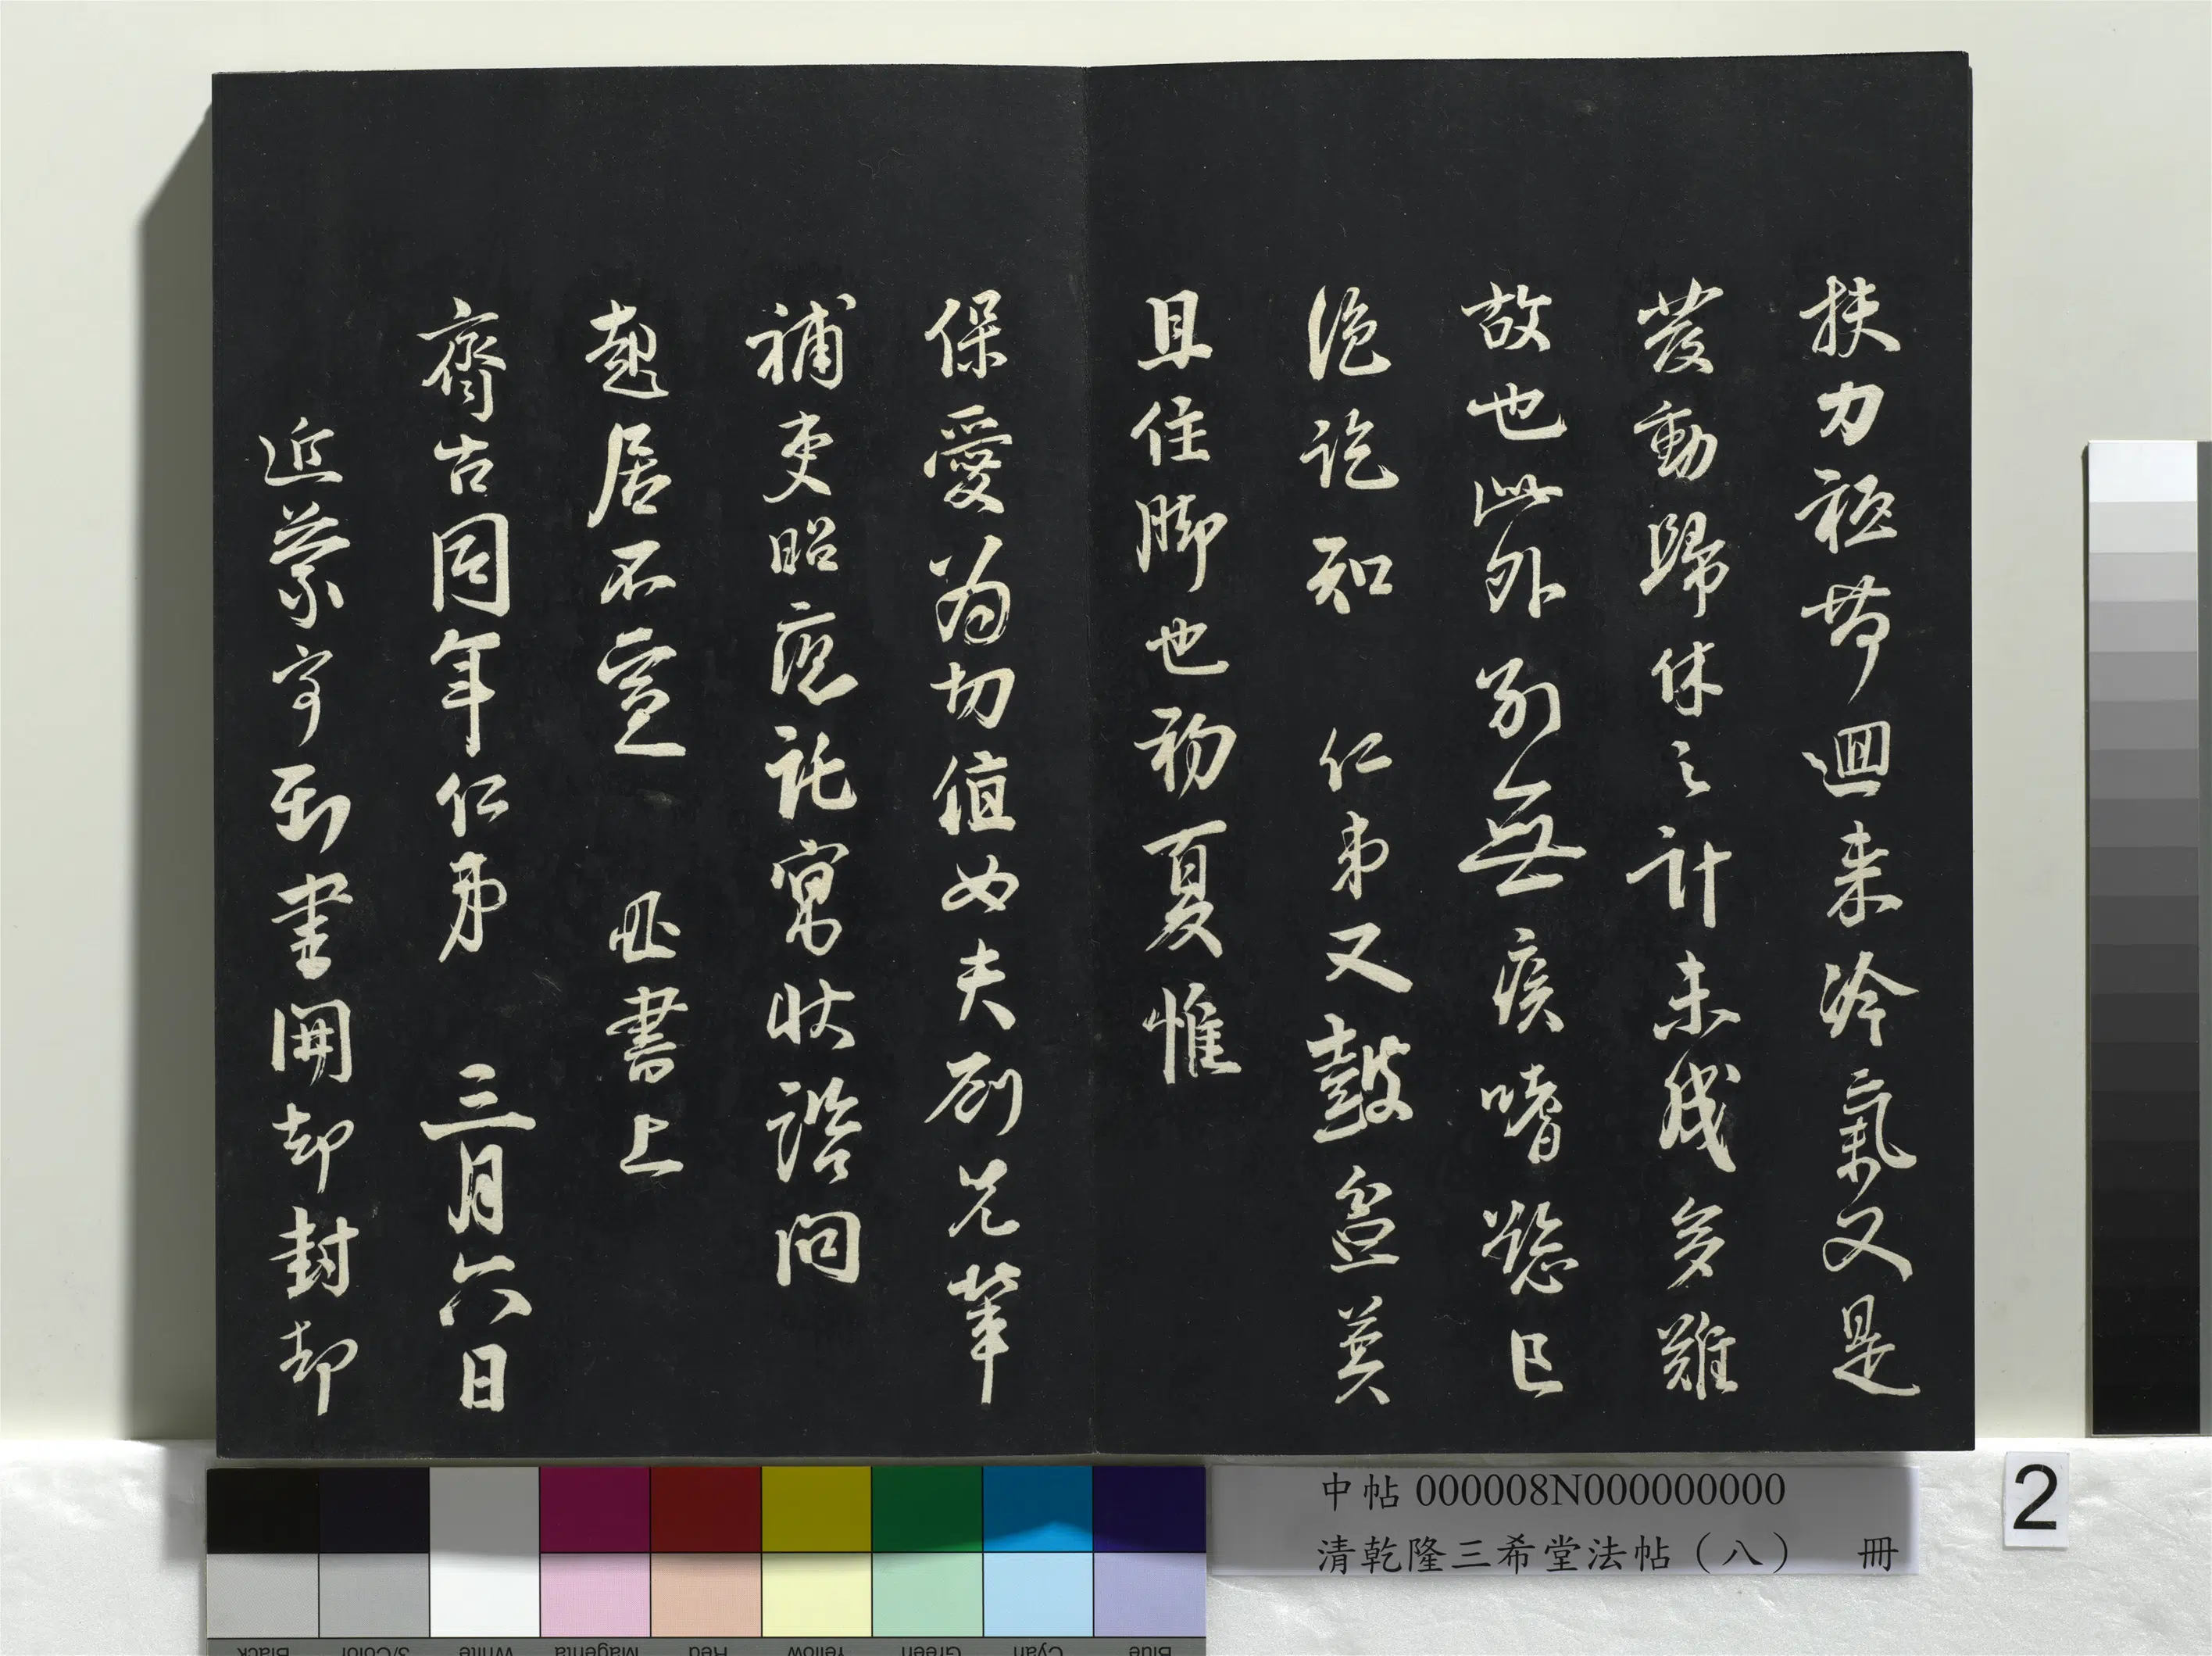 扶力祗帶迴来冷氣又是
發動歸休之計未成多難
故也此外别無疾嗜慾已
絶訖知 仁弟又鼓盆莫
且住脚也初夏惟
保愛为切值女夫刘兄輦
補吏昭應託寓狀諮問
起居不宣 書上
齊古同年仁弟 三月六日
近蒙寄到書開却封却
中帖 000008N000000000
清乾隆三希堂法帖（八） 冊
2
Black
3/Color
White
Magenta
Red
Yellow
Green
Cyan
Blue